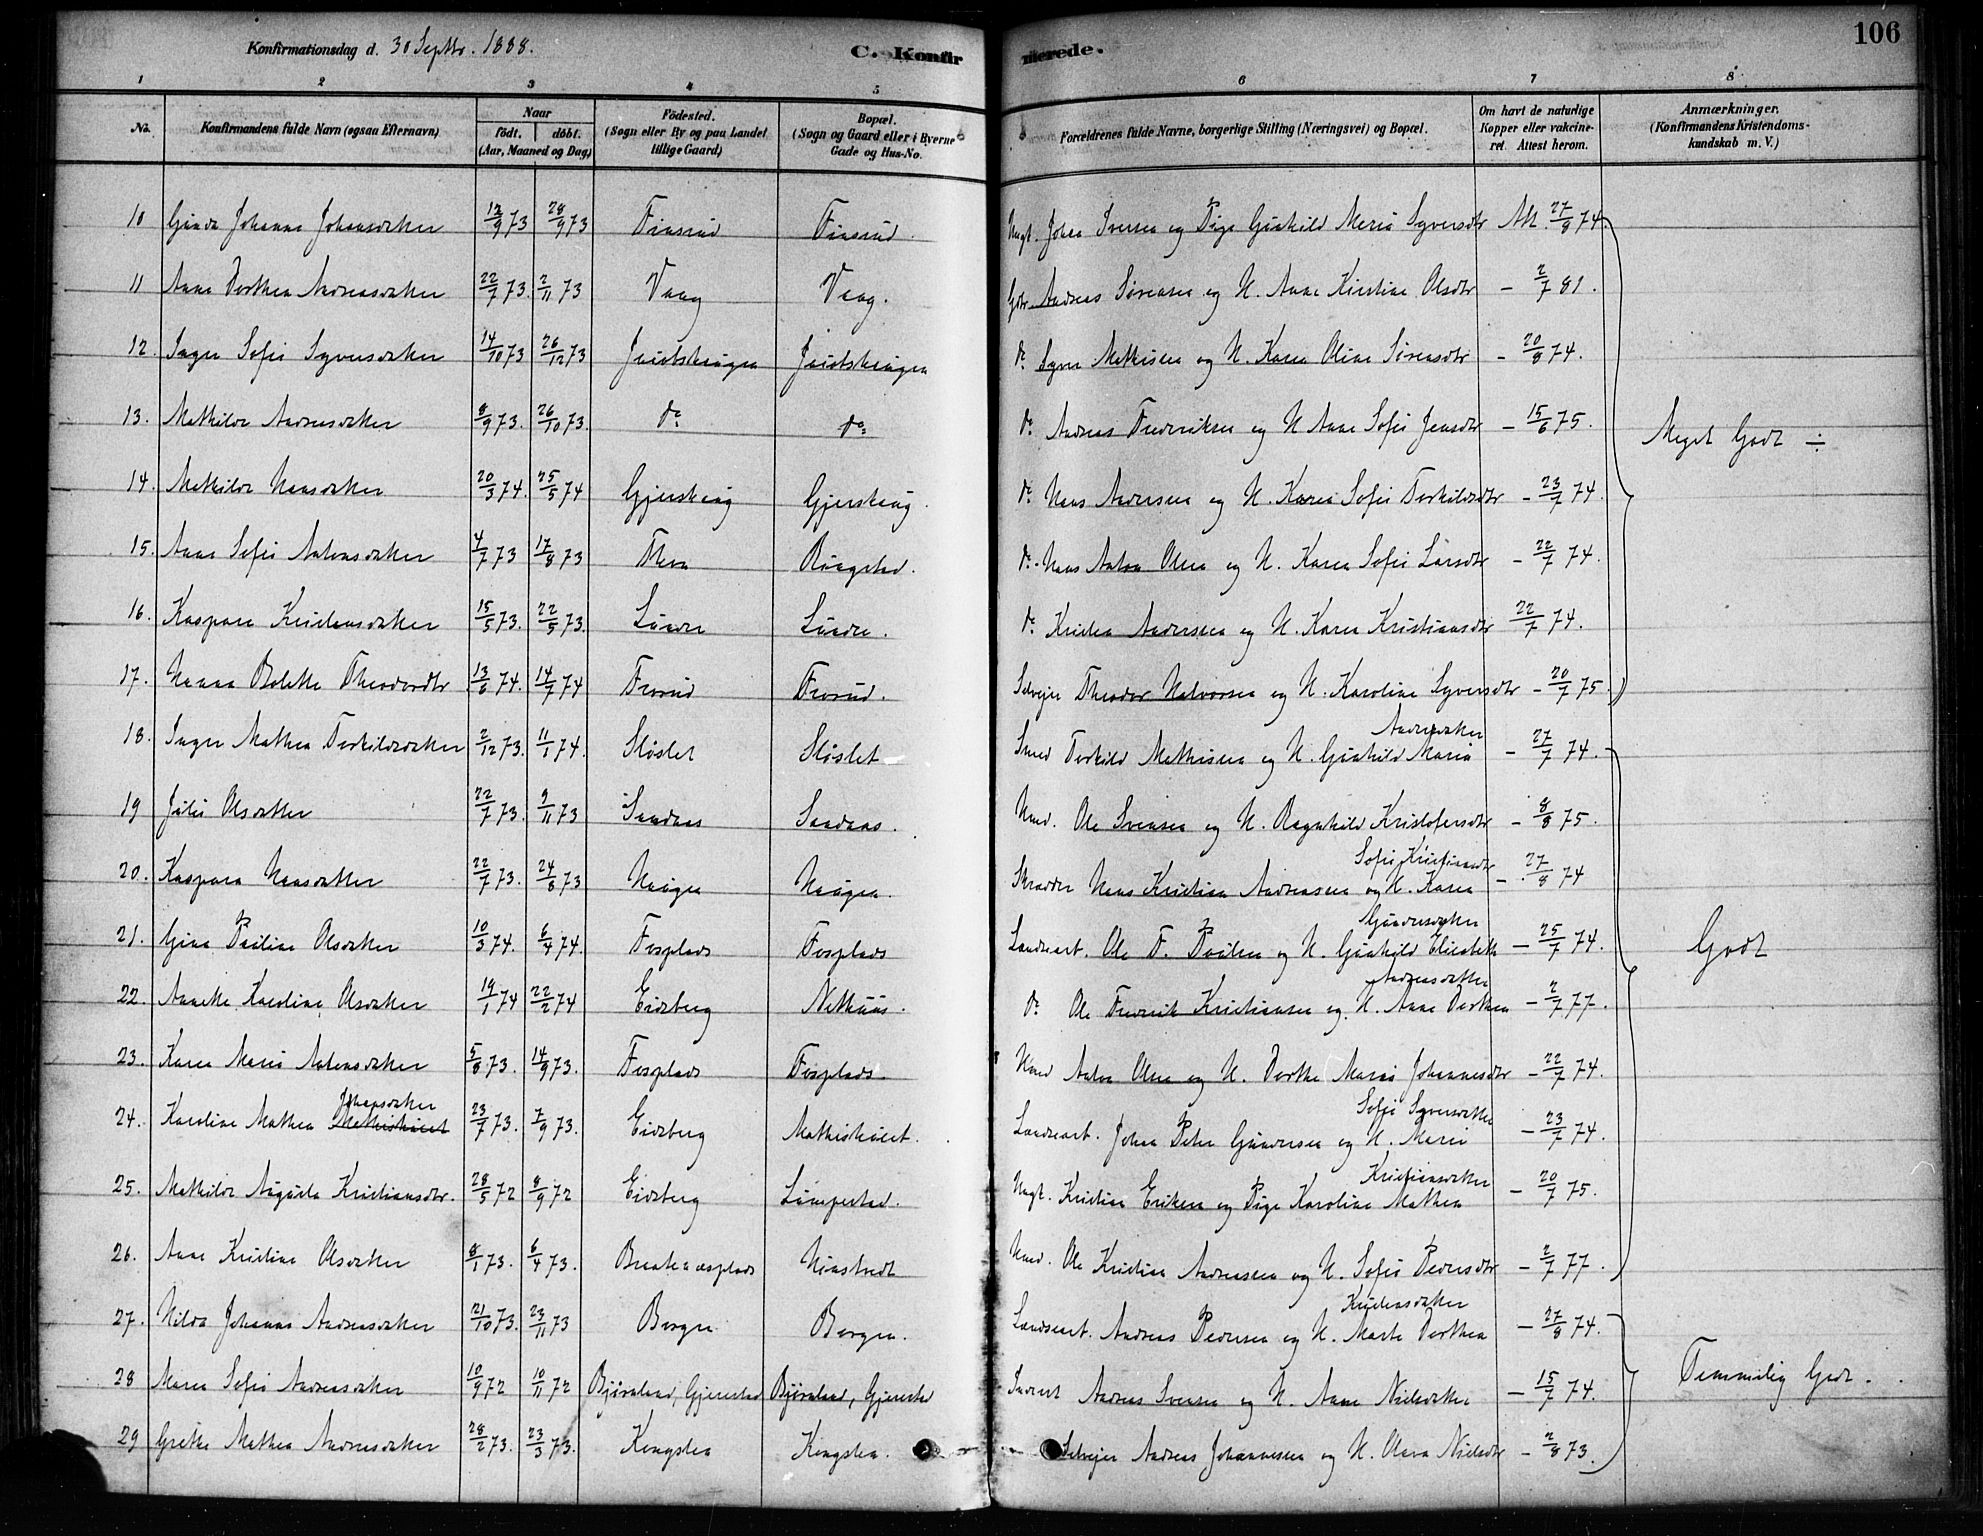 106
Konfirmationsdag d. 30 Septbr. 1888.
C. Konfirmerede.
1 2 3 4 5 6 7 8
No.
Konfirmandens fulde Navn (ogsaa Efternavn)
Naar
født. døbt.
(Aar, Maaned og Dag)
Fødested.
(Sogn eller By og paa Landet
tillige Gaard)
Bopæl.
(Sogn og Gaard eller i Byerne
Gade og Hus-No.
Forældrenes fulde Navne, borgerlige Stilling (Næringsvei) og Bopæl.
Om havt de naturlige
Kopper eller vakcine-
ret. Attest herom.
Anmærkninger.
(Konfirmandens Kristendoms-
kundskab m. V.)
10 Johanna Johansdatter 12/9 73 28/9 73 Finsrud Finsrud. Ungk. Johan Iversen og Pige Gunhild Maria Syversdtr Att. 27/8 74.
11 Anna Dorthea Andreasdatter 22/7 73. 2/11 73 Vaag Vaag. Gbr. Andreas Sørensen og H. Anne Kirstine Olsdtr – 2/7 81.
12. Inger Sofie Syversdatter 14/10 73 26/12 73 do Syver Mathisen og H. Karen Oline Sørensdtr – 20/8 74.
13. Mathilde Andreasdatter 8/9 73. 26/10 73. do do do Andreas Frederiksen og H Anne Sofie Jensdtr – 15/6 75.
Meget Godt ÷
14. Mathilde Hansdatter 20/3 74. 25/5 74 Gjerskaug Gjerskaug. do Hans Andersen og H. Karen Sofie Terkildsdtr – 23/7 74.
15. Anne Sofie Antonsdatter 4/7 73 17/8 73 Ringstad. do Hans Anton Olsen og H. Karen Sofie Larsdtr – 22/7 74.
16. Kaspara Kristensdatter 15/5 73. 22/5 73. Lunde Lunde. do Kristen Andersen og H. Karen Kristiansdtr 22/7 74.
17. Hanna Bolette Theodordtr 13/6 74. 14/7 74 Frorud Frorud. Selveier Theodor Halvorsen og H. Karoline Syversdtr – 20/7 75.
18. Inger Mathea Terkildsdatter 2/12 73. 11/1 74. Sløslet Sløslet Smed Terkild Mathisen og H. Gunhild Maria Andersdatter – 27/7 74.
19 Julie Olsdatter 22/7 73. 9/11 73 Sandaas Sandaas. Hmd. Ole Svensen og H. Ragnhild Kristofersdtr – 8/8 75.
20. Kaspara Hansdatter 22/7 73. 24/8 73 Haugen Haugen. Skrædder Hans Kristian Andreasen og H. Karen Sofie Kristiansdtr – 27/8 74
21. Gina Pauline Olsdatter 10/3 74. 6/4 74. Fosplads Fosplads Landseart. Ole F. Paulsen og H. Gunhild Elisabeth Gundersdatter – 25/7 74.
Godt
22. Annette Karoline Olsdatter 19/1 74 22/2 74 Eidsberg Nethuus. do Ole Fredrik Kristiansen og H. Anne Dorthea Andreasdatter – 2/7 77.
23. Karen Marie Antonsdatter 5/8 73. 14/9 73. Fosplads Fosplads. Hmd Anton Olsen og H. Dorthe Marie Johannesdtr – 22/7 74.
24. Karoline Mathea Johansdatter 23/7 73. 7/9 73. Eidsberg Mathishuset. Landseart. Johan Peter Gundersen og H. Maria Sofie Syversdatter – 23/7 74.
25. Mathilde Augusta Kristiansdtr. 28/5 72 8/9 72 Eidsberg Limpestad. Ungk. Kristian Eriksen og Pige Karoline Mathea Kristiansdatter – 20/7 75.
26. Anne Kristine Olsdatter 8/1 73. 6/4 73. Hmd. Ole Kristian Andreasen og H. Sofie Pedersdtr – 2/7 77.
27. Hilda Johanne Andreasdatter 21/10 73. 23/11 73 Borgen Borgen. Landseart. Andreas Pedersen og H. Marte Dorthea Kristensdatter – 27/8 74.
28 Maren Sofie Andreasdatter 10/9 72 10/11 72 Bjørnland, Gjerestad Bjørnland, Gjerestad Inderst Andreas Svensen og H. Anne Nielsdatter – 15/7 74.
Temmelig Godt.
29 Grethe Mathea Andreasdatter 28/2 73. 23/3 73. Kongslea Kongslea. Selveier Andreas Johannessen og H. Olava Nielsdtr – 2/8 73.